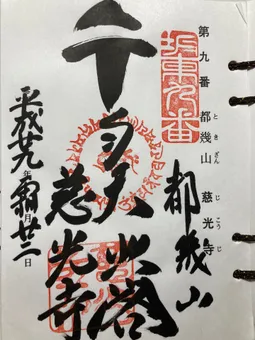 第九番 都幾山 慈光寺
ときざん じこうじ
坂東九番
都幾山
慈光寺
平成廿九年霜月廿三日